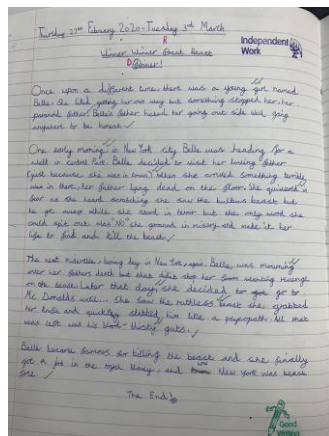 Thursday 27th February 2020 - Tuesday 3rd March
Independent
Work
Winner Winner Great Beast
R
D
Dinner!
Once upon a different time, there was a young girl named
Belle. She liked getting her own way but something stopped her; her
paranoid father. Belle's father hated her going out side well going
anywhere to be honest.
One early morning in New York city Belle was heading for a
walk in central Park. Belle decided to visit her loving father
(just because she was in town). When she arrived something terrible
was in there, her father lying dead on the floor. She quivered in
fear as she heard scratching she saw the beast but
he got away while she stood in terror but the only word she
could spit out was "NO" the ground in misery and make it her
life to find and kill the beast.
The next day in New York, again, Belle was mourning
over her fathers death but that didnt stop her from wanting revenge
on the beast. Later that day, she decided to go to
Mc Donalds until... she saw the ruthless beast she grabbed
her knife and quickly stabbed him like a psycopath. All that
was left was his blood-thirsty guts.
Belle became famous for killing the beast and she finally
got a job in the library, and New York was beast
free.
The End!
Good
Writing